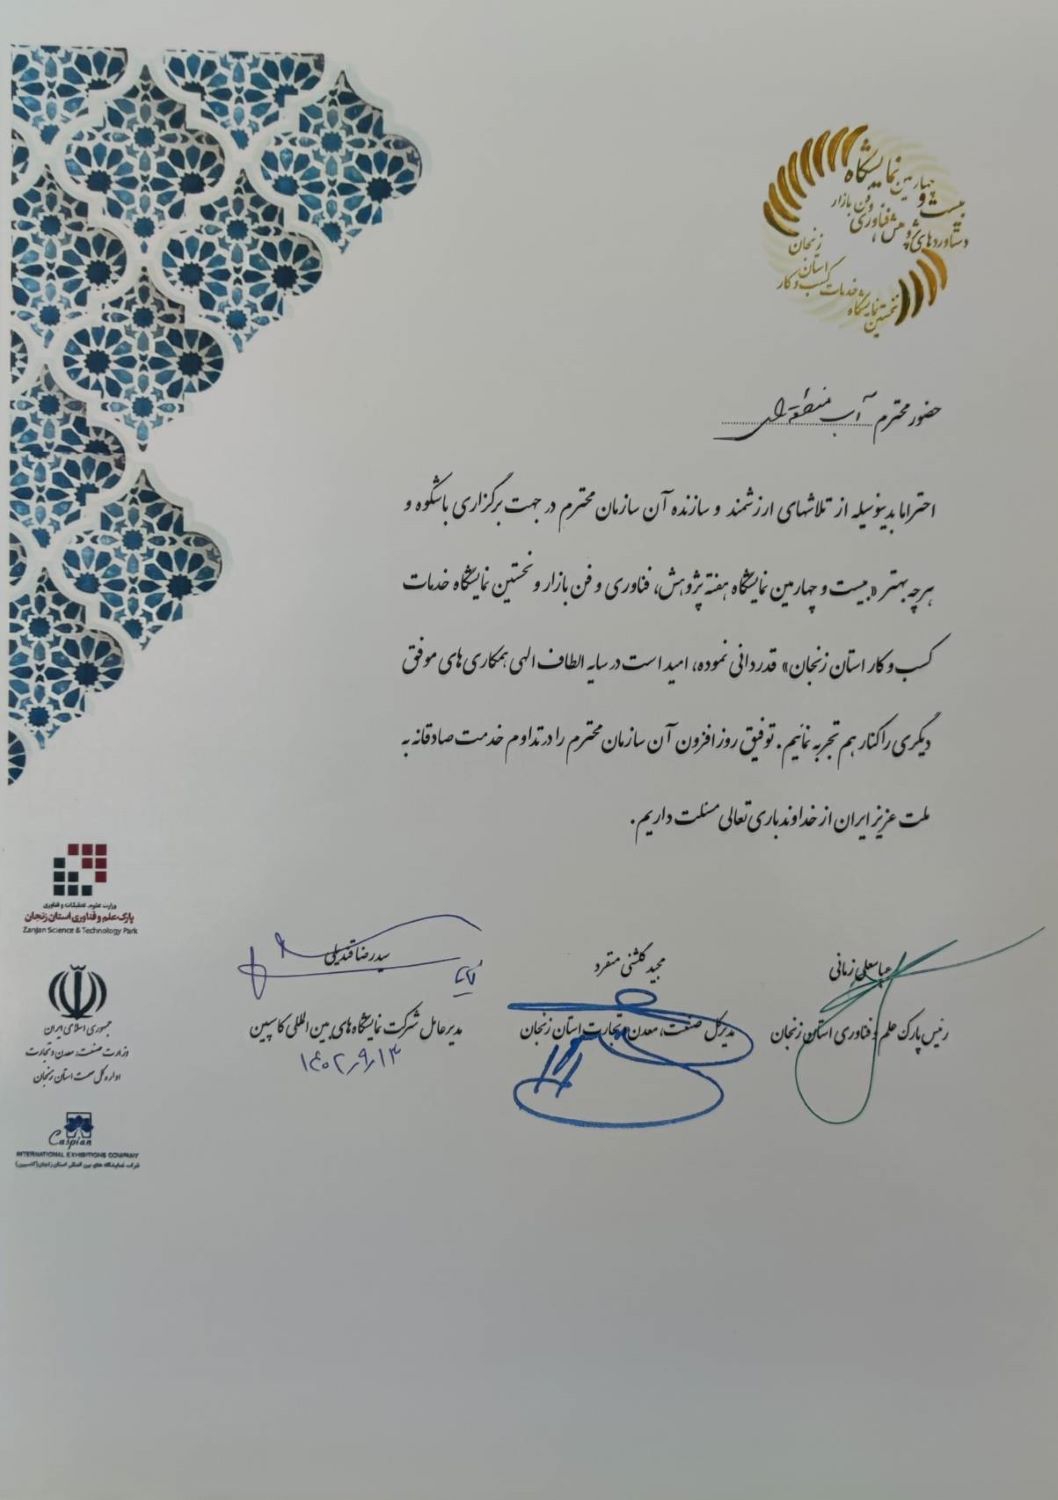 بیست و چهارمین نمایشگاه
دستاوردهای پژوهش، فناوری و فن بازار
استان زنجان
نخستین نمایشگاه خدمات کسب و کار
حضور محترم آب منطقه ای
احتراما بدینوسیله از تلاشهای ارزشمند و سازنده آن سازمان محترم در جهت برگزاری باشکوه و
هرچه بهتر «بیست و چهارمین نمایشگاه هفته پژوهش، فناوری و فن بازار و نخستین نمایشگاه خدمات
کسب و کار استان زنجان» قدردانی نموده، امید است در سایه الطاف الهی همکاری های موفق
دیگری را کنار هم تجربه نمائیم. توفیق روز افزون آن سازمان محترم را در تداوم خدمت صادقانه به
ملت عزیز ایران از خداوند باری تعالی مسئلت داریم.
عباسعلی زمانی
رئیس پارک علم و فناوری استان زنجان
مجید گلشنی منفرد
مدیرکل صنعت، معدن و تجارت استان زنجان
سیدرضا قندیلی
مدیرعامل شرکت نمایشگاه های بین المللی کاسپین
۱۴۰۲٫۹٫۱۳
وزارت علوم، تحقیقات و فناوری
پارک علم و فناوری استان زنجان
Zanjan Science & Technology Park
جمهوری اسلامی ایران
وزارت صنعت، معدن و تجارت
اداره کل صمت استان زنجان
Caspian
INTERNATIONAL EXHIBITIONS COMPANY
شرکت نمایشگاه های بین المللی استان زنجان (کاسپین)